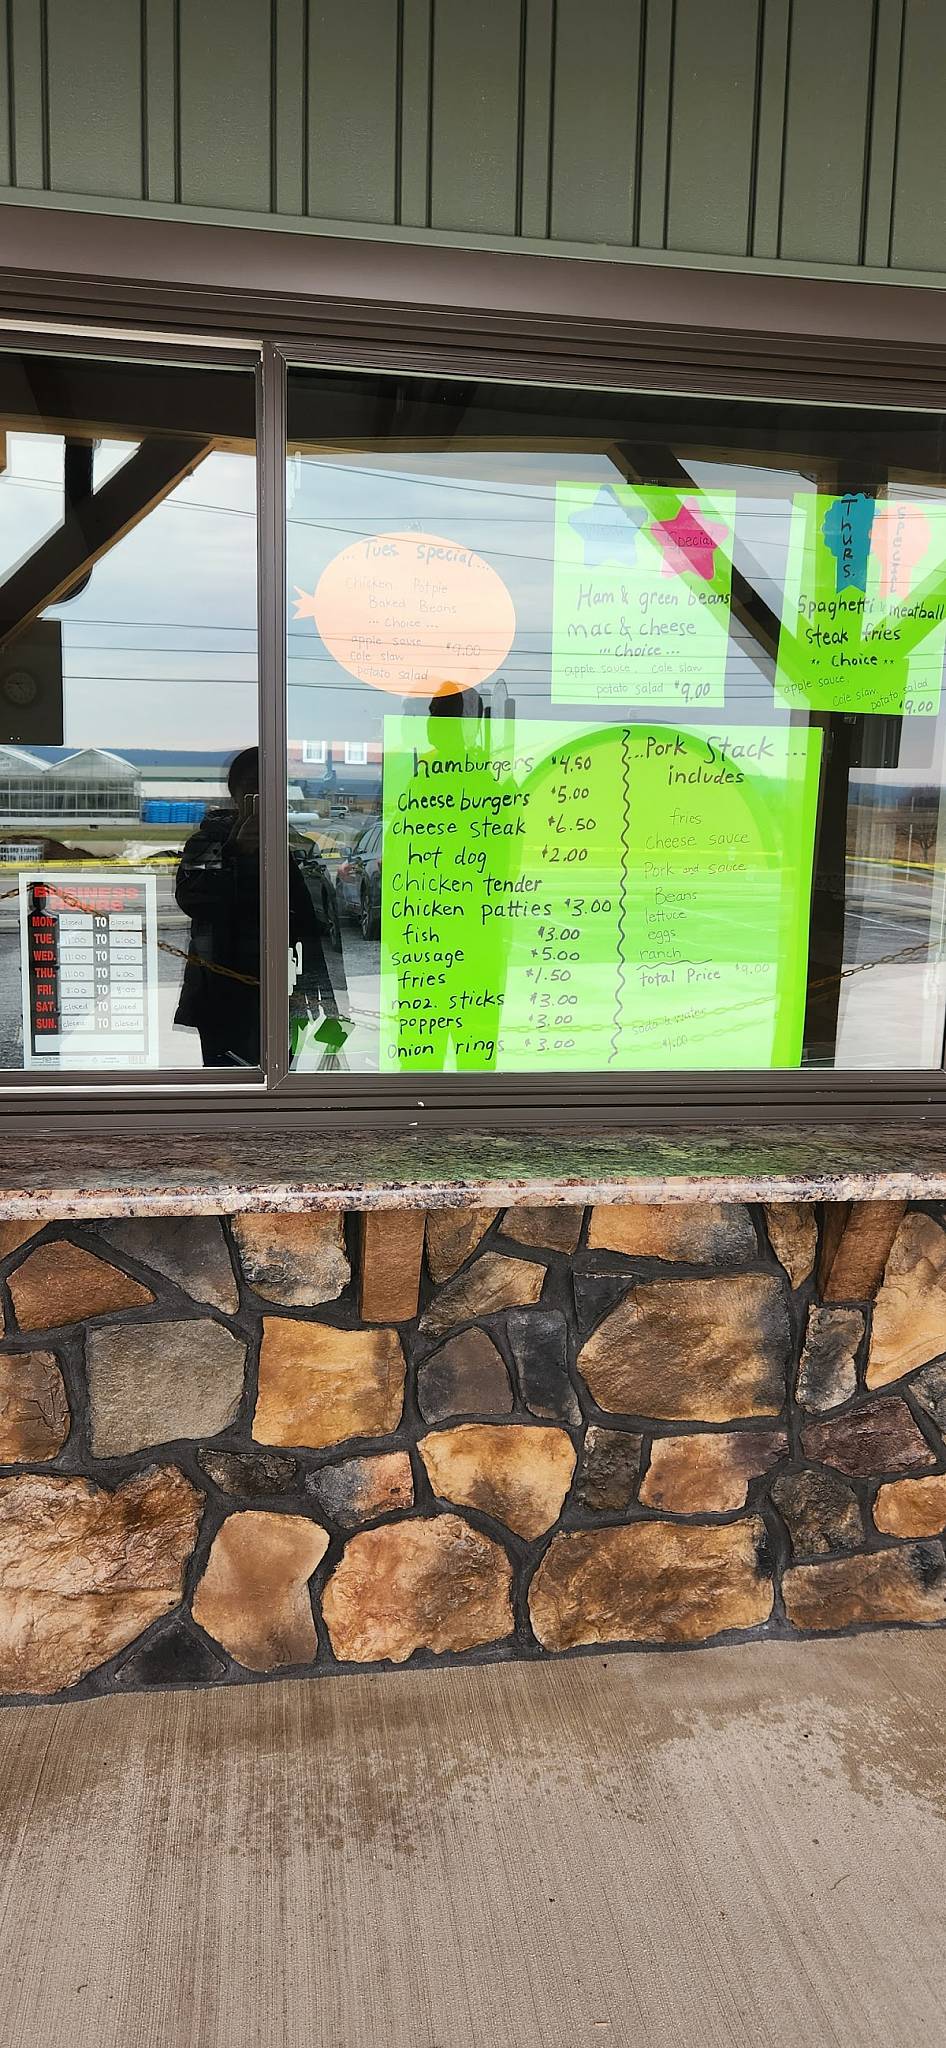 ... Tues. Special ...
Chicken Potpie
Baked Beans
... Choice ...
apple sauce $9.00
cole slaw
potato salad
Special
Ham & green beans
mac & cheese
... Choice ...
apple sauce. cole slaw
potato salad $9.00
Thurs.
Special
Spaghetti & meatball
Steak fries
** Choice **
apple sauce.
Cole slaw.
potato salad
$9.00
hamburgers $4.50
Cheese burgers $5.00
Cheese Steak $6.50
hot dog $2.00
Chicken tender
Chicken patties $3.00
fish $3.00
sausage $5.00
fries $1.50
moz. sticks $3.00
poppers $3.00
Onion rings $3.00
... Pork Stack ...
includes
fries
Cheese sauce
Pork and sauce
Beans
lettuce
eggs
ranch
total Price $9.00
soda & water
$1.00
BUSINESS
HOURS
MON. closed TO closed
TUE. 11:00 TO 6:00
WED. 11:00 TO 6:00
THU. 11:00 TO 6:00
FRI. 8:00 TO 8:00
SAT. closed TO closed
SUN. closed TO closed